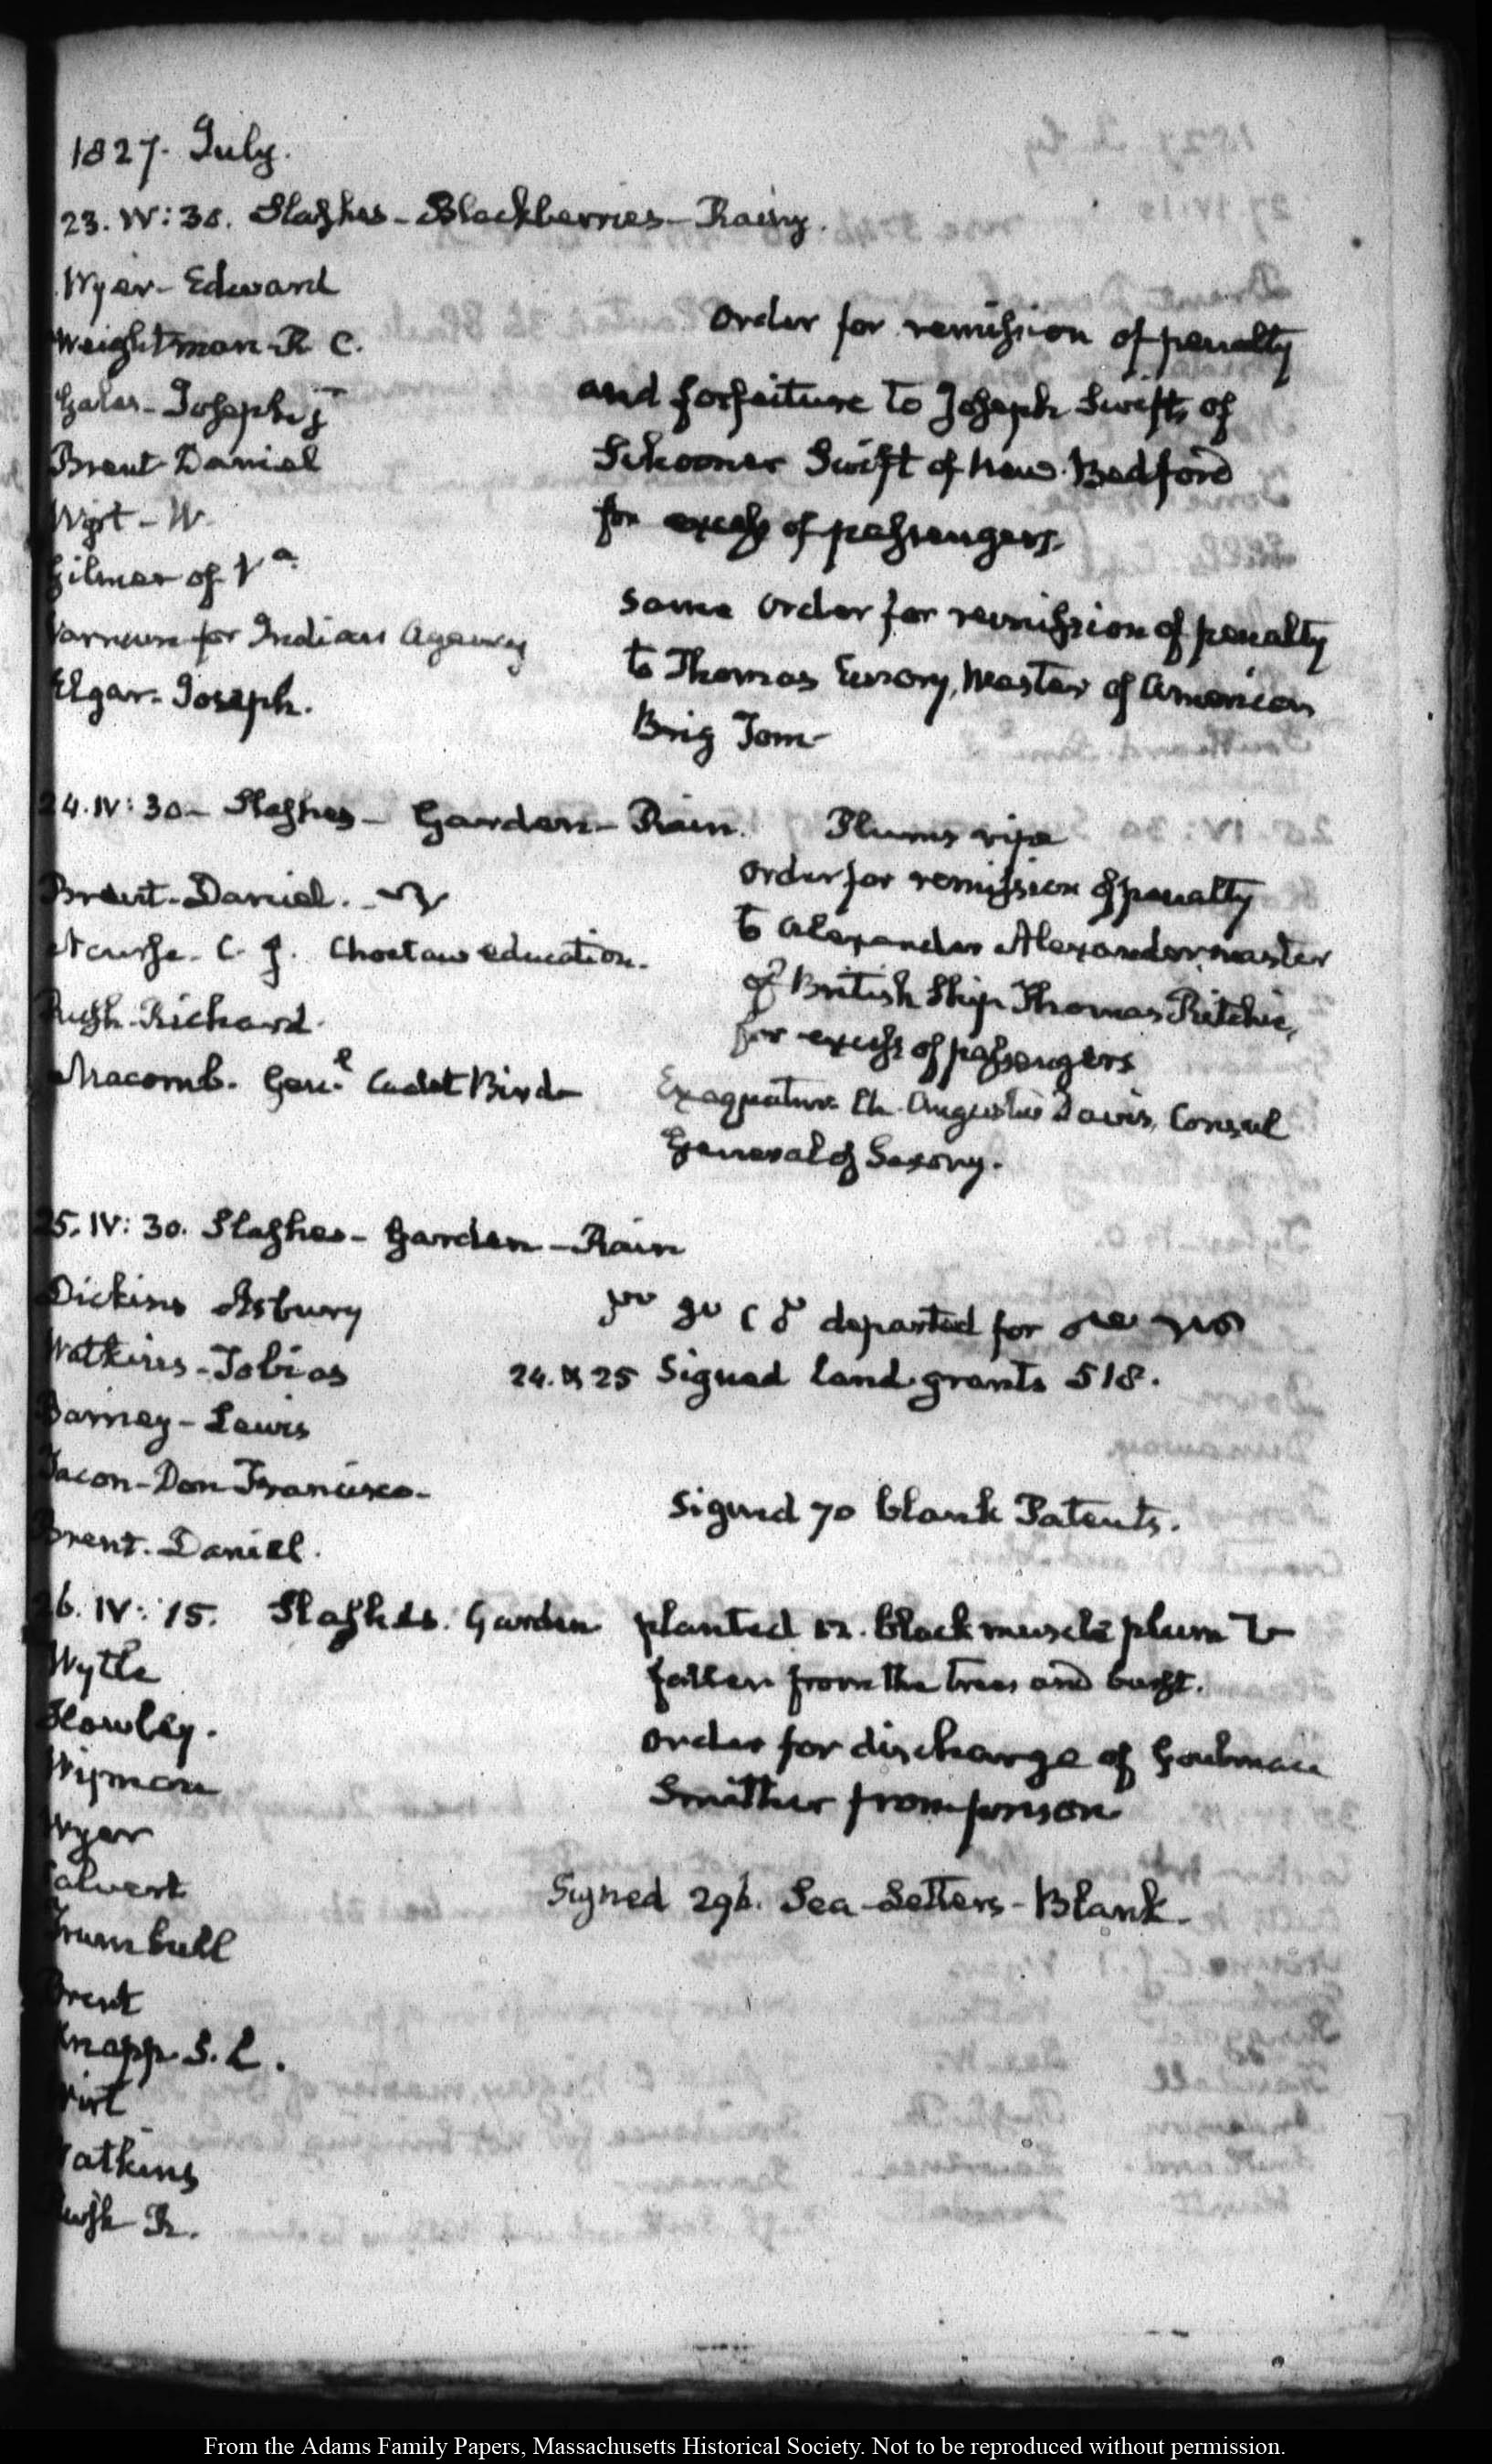 1827. July.
23. IV: 30. Slashes - Blackberries - Rainy.
Wyer - Edward
Weightman - R C.
Gales - Joseph jr
Brent Daniel
Wirt - W.
Gilmer of Va.
Varnum for Indian Agency
Elgar - Joseph.
Order for remission of penalty
and forfeiture to Joseph Swift, of
Schooner Swift of New Bedford
for excess of passengers.
Same order for remission of penalty
to Thomas Emory, Master of American
Brig Tom -
24. IV: 30 - Slashes - Garden - Rain. Plums ripe
Brent - Daniel. -
Nourse. C. J. Choctaw education.
Rush - Richard.
Macomb. Genl. Cadet Bird -
Order for remission of penalty
to Alexander Alexander, master
of British Ship Thomas Ritchie,
for excess of passengers
Exequatur Ch. Augustus Davis, Consul
General of Saxony.
25. IV: 30. Slashes - Garden - Rain
Dickins Asbury
Watkins - Tobias
Barney - Lewis
Tacon - Don Francisco -
Brent. Daniel.
departed for
24. & 25 Signed land grants 518.
Signed 70 blank Patents.
26. IV: 15. Slashes. Garden
Wyer
Calvert
Trumbull
Brent
Knapp. S. L.
Wirt
Watkins
Rush R.
planted 12. black muscle plum
fallen from the trees and burst.
Order for discharge of
Smither from prison
Signed 296. Sea-Letters - Blank.
From the Adams Family Papers, Massachusetts Historical Society. Not to be reproduced without permission.